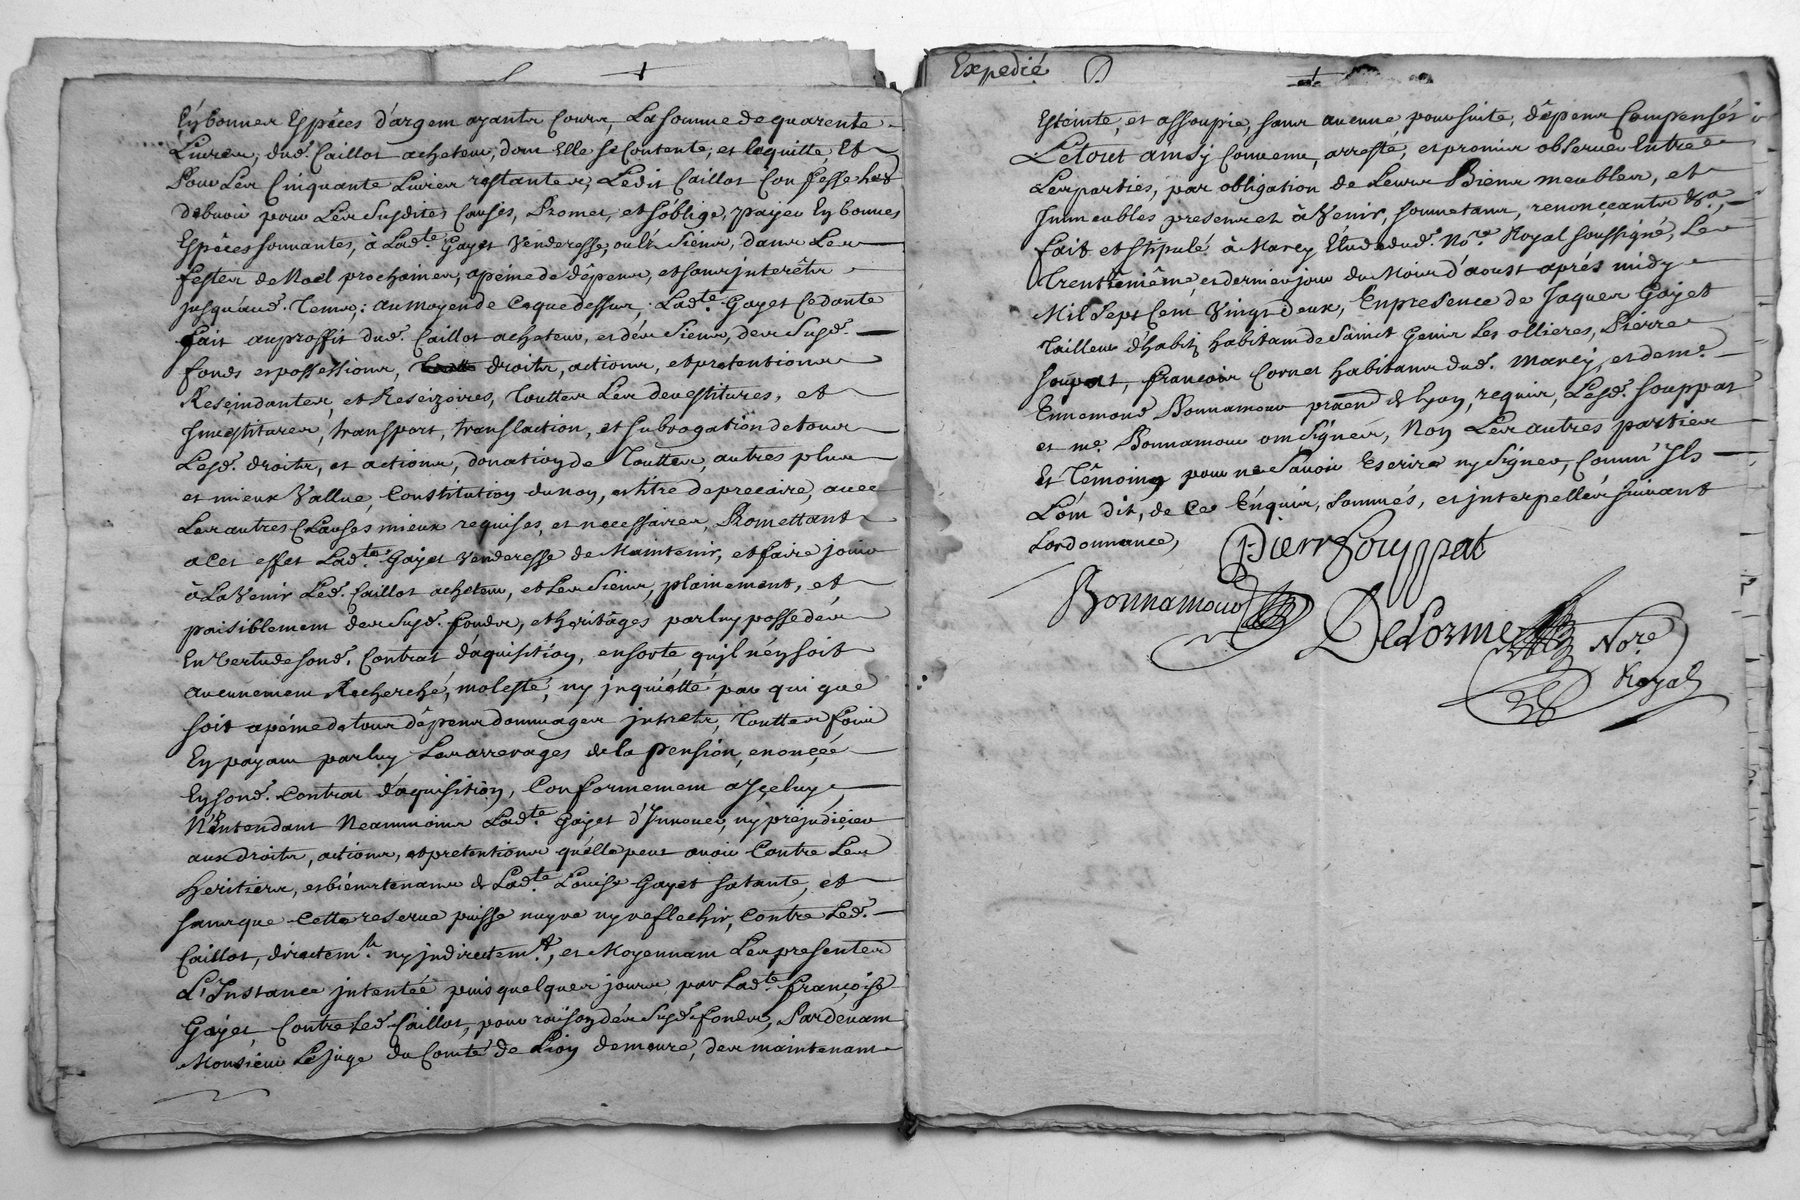 Ey bonnes Espèces d'argem ayants Cours, La somme de quarente
Livres, dud. Caillot acheteur, dom Elle se Contente, et lequitte, Et
Pour Les Cinquante Livres restantes, Ledit Caillot Confesse les
debvoir pour Les Susdites Causes, Promet, et s'oblige, payer Ey bonnes
Espèces sonnantes, à Lad.te Gayet Venderesse, ou és Siens, dans Les
festes de Noël prochaines, apéine de dêpens, et sans jnterêts
jusqu'aud. Tems; au moyen de Ceque dessus, Lad.te Gayet Cedante
fait auproffit dud. Caillot acheteur, et dés Siens, des Susd.
fonds et possessions, droits, actions, et pretentions
Resçindantes, et Resçizoires, Touttes Les devestitures, et
Jnvestitures, transport, translaction, et subrogation de tous
Lesd. droits, et actions, donatioy de Touttes, autres plus
et mieux Vallue, Constitutioy dunoy, et titre de precaire, avec
Les autres Clauses mieux requises, et necessaires, Promettant
a cet effet Lad.te Gayet Venderesse de Maintenir, et faire jouir
à La Venir Led. Caillot acheteur, et Les Siens, plainement, et
paisiblement des Susd. fonds, et héritages par luy possedés
En Vertu de sond. Contrat d'aquisitioy, ensorte qu'jl n'ey soit
aucunement Recherché, molesté, ny jnquiétté par qui que
soit apéine de tous dêpens dommages jnterets, Touttes fois
Ey payam par luy Les arrerages de la pension, enonçéé
Ey sond. Contrat d'aquisitioy, Conformemem a Jçeluy
N'Entendant Neammoins Lad.te Gayet d'Jnnover, ny prejudiçier
aux droits, actions, et pretentions qu'elle peut avoir Contre Les
heritiers, et biéntenans de Lad.te Louise Gayet sa tante, et
sans que Cette reserve puisse nuyre ny reflechir, Contre Led.
Caillot, directem.t ny jndirectem.t, et Moyennam Les presentes
L'Jnstance jntentée puis quelques jours par Lad.te françoise
Gayet, Contre Led. Caillot, pour raisoy dés Susd. fonds, Pardevam
Monsieur Le juge du Comté de Lioy demeure, des maintenam
Expedié
Esteinte, et assoupie, sans aucune poursuite, dêpens Compensés
Letout ainsÿ Convenu, arresté, et promis observer Entre
Les parties, par obligation de Leurs Biens meubles, et
Jmmeubles presens et à Venir, soumetans, renonçeants &a,
fait et stipulé à Marcy Étude dud. No.re Royal soussigné, Le
Trentiémême et dernier jour du Mois d'aoust aprés midy
Mil Sept Cent Vingt deux, En presence de Jaques Gayet
Tailleur d'habit, habitam de Sainct Genis les ollieres, Pierre
Souppat, françois Cornet habitans dud. Marcy, et de me.
Ennemond Bonnamour praen de Lyon, requis, Lesd. Souppat
et me. Bonnamour om Signes, Noy Les autres parties
Et Témoing pour ne Savoir Escrire ny Signer, Comm' Jls
L'om dit, de Ce Enquis, Sommés, et jnterpellés suivant
Lordonnance,
Pierr Souppat
Bonnamour
Delorme
No.re
Royal